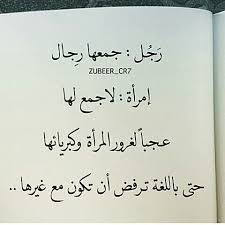 رَجُل : جمعها رِجال
ZUBEER_CR7
إمرأة : لاجمع لها
عجباً لغرور المرأة وكبريائها
حتى باللغة ترفض أن تكون مع غيرها ..